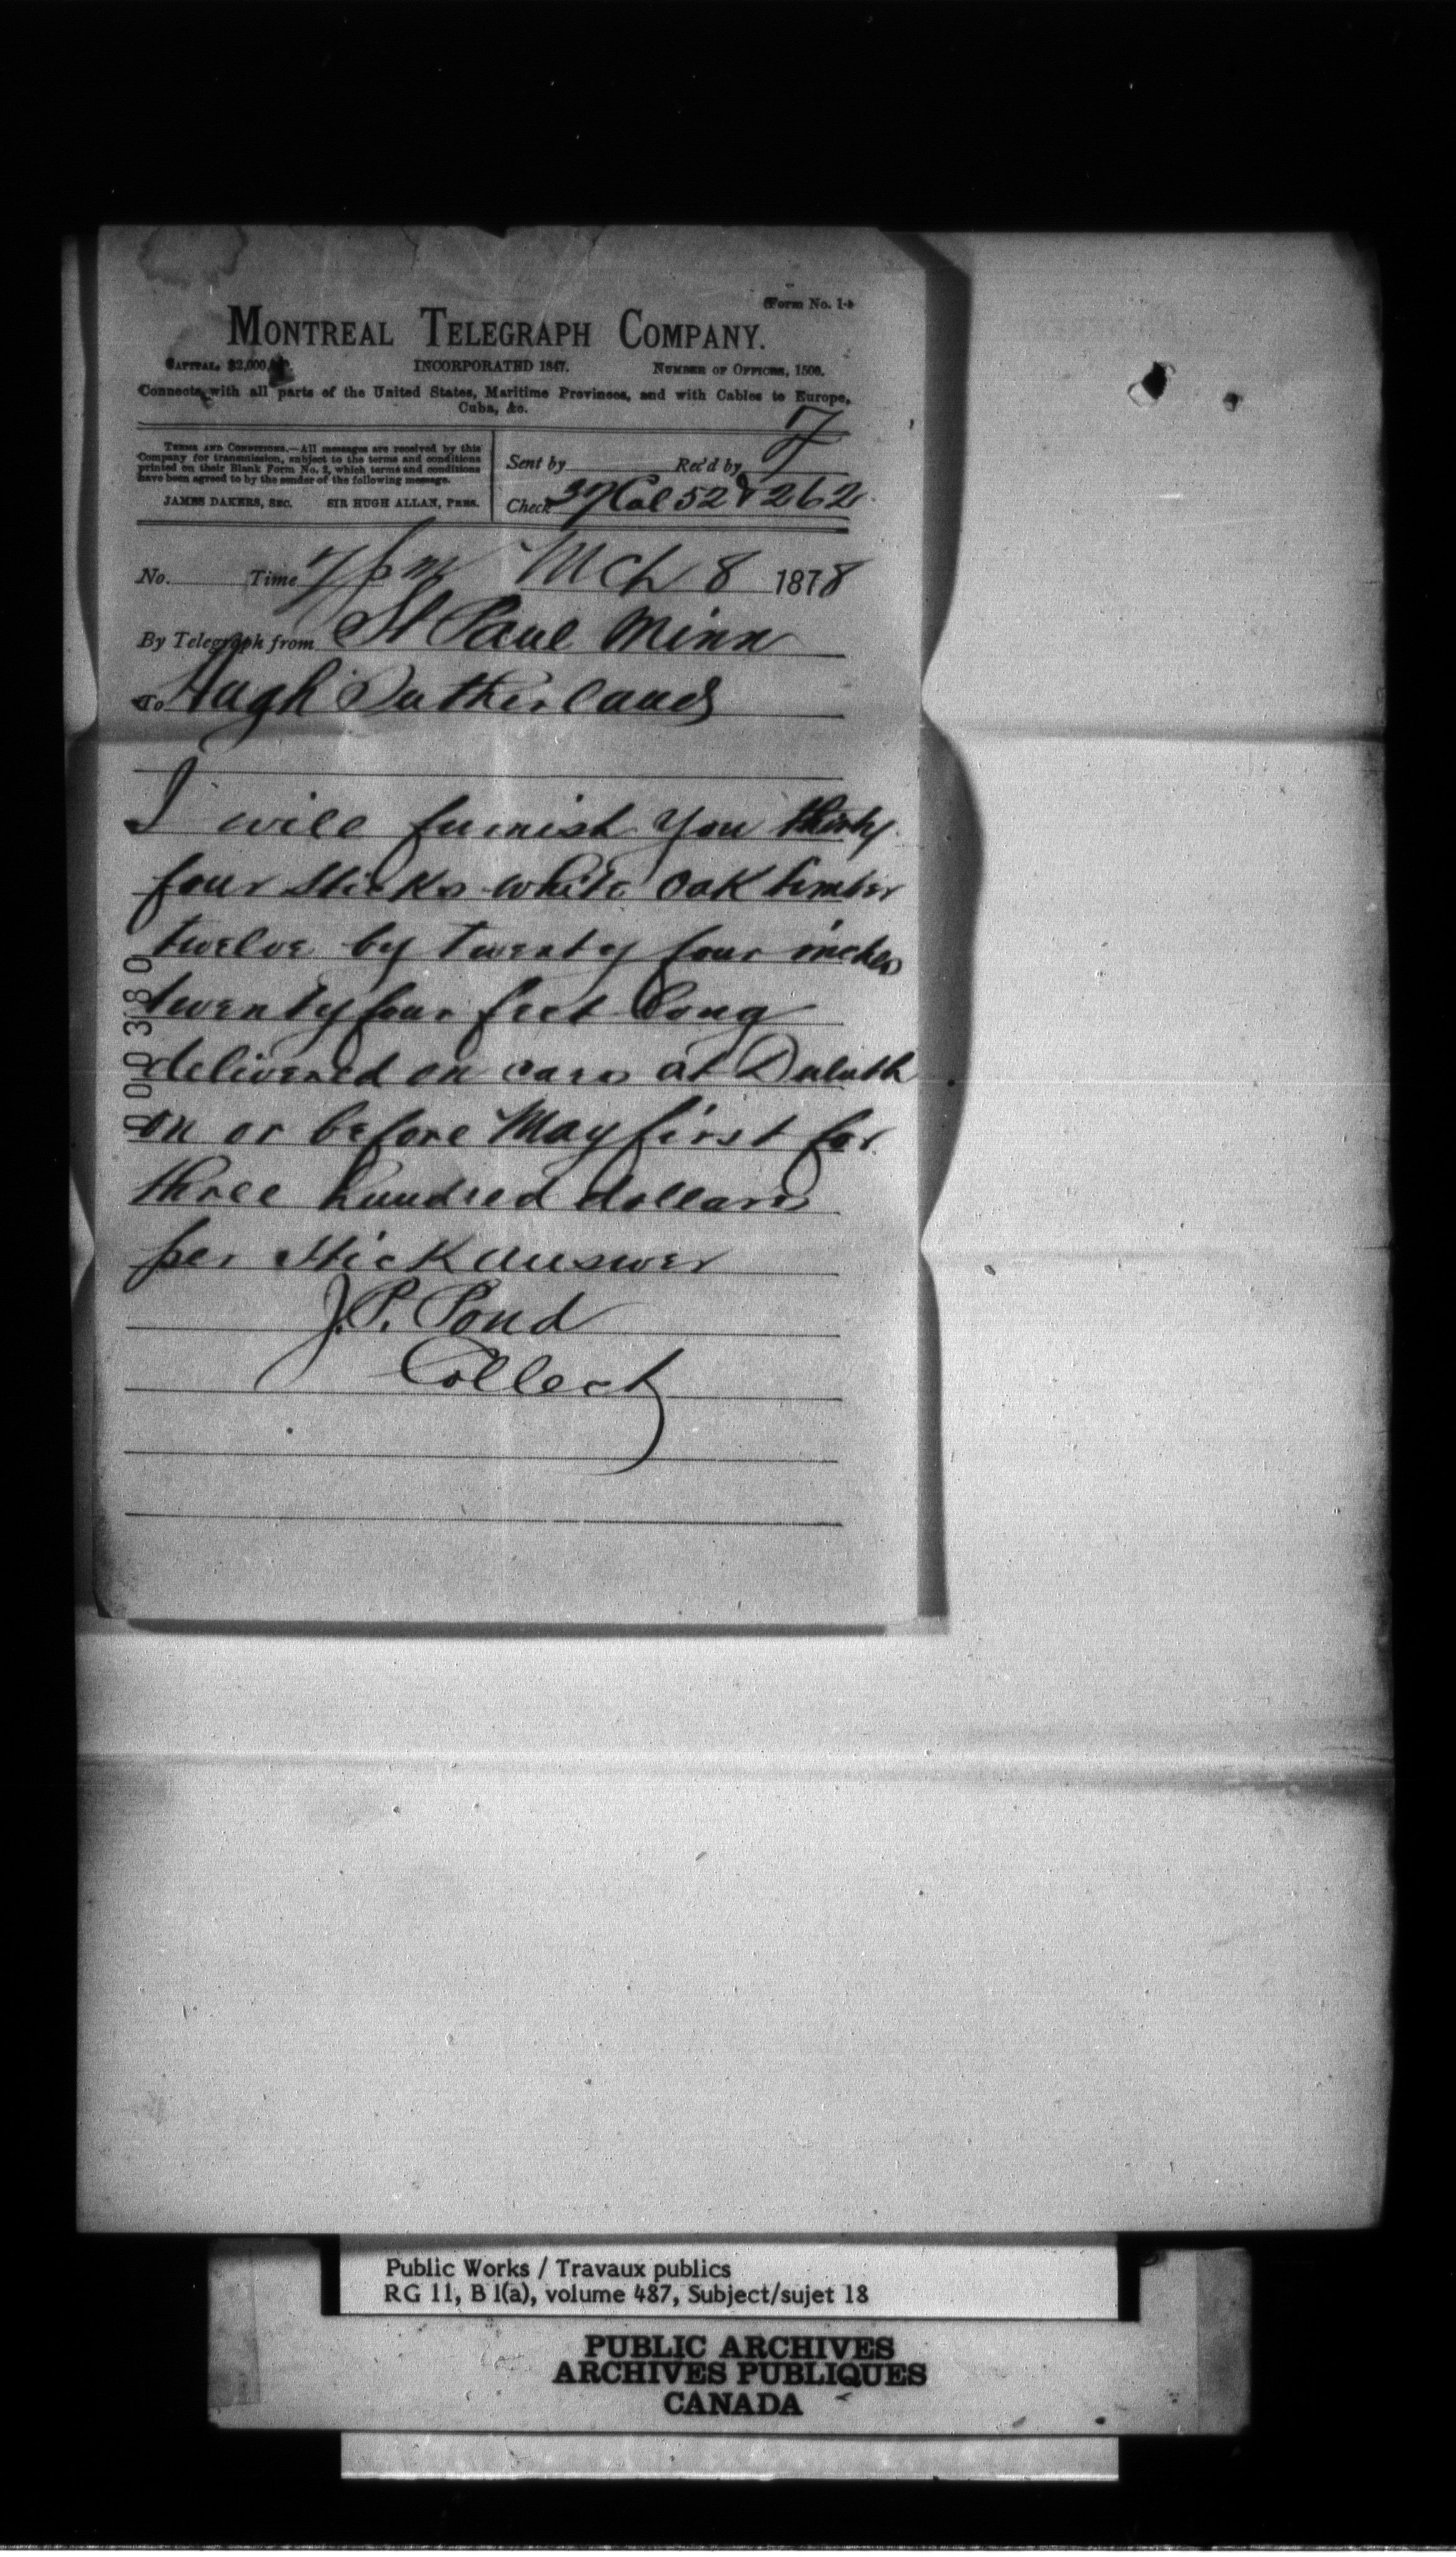 (Form No. 1
MONTREAL TELEGRAPH COMPANY.
CAPITAL, $2,000, INCORPORATED 1847. NUMBER OF OFFICES, 1500.
Connects with all parts of the United States, Maritime Provinces, and with Cables to Europe,
Cuba, &c.
TERMS AND CONDITIONS.—All messages are received by this
Company for transmission, subject to the terms and conditions
printed on their Blank Form No. 2, which terms and conditions
have been agreed to by the sender of the following message.
JAMES DAKERS, SEC. SIR HUGH ALLAN, PRES.
Sent by Rec'd by
Check 37 Col 52 & 262
No. Time 7 pm Mch 8 1878
By Telegraph from St Paul Minn
To Hugh Sutherland
I will furnish you thirty
four sticks white oak timber
twelve by twenty four inches
twenty four feet long
delivered on cars at Duluth
on or before May first for
three hundred dollars
per stick answer
J. P. Pond
Collect
000380
Public Works / Travaux publics
RG 11, B 1(a), volume 487, Subject/sujet 18
PUBLIC ARCHIVES
ARCHIVES PUBLIQUES
CANADA